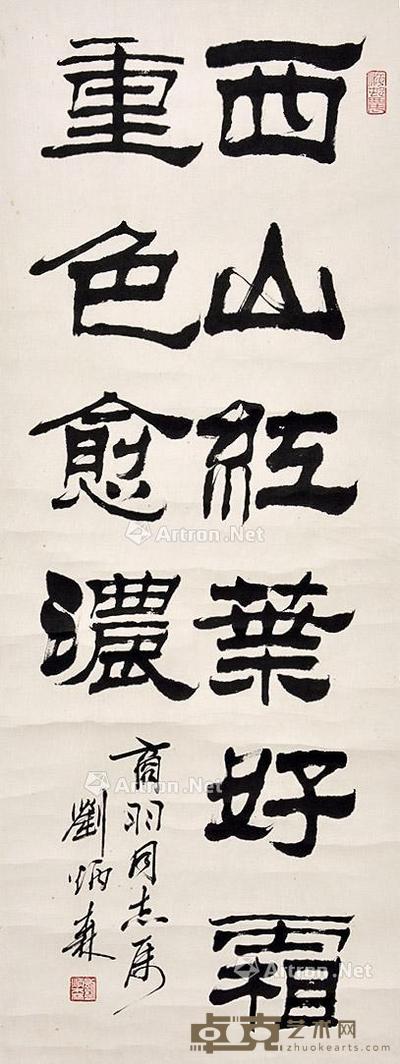 西山红葉好霜
重色愈濃
商羽同志属
劉炳森
Artron.Net
Artron.Net
Artron.Net
Artron.Net
卓克艺术网
www.zhuokearts.com